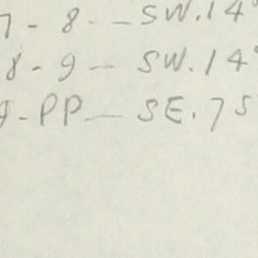 7 - 8 - — SW. 14°
8 - 9 — SW. 14°
9 - PP — SE. 75